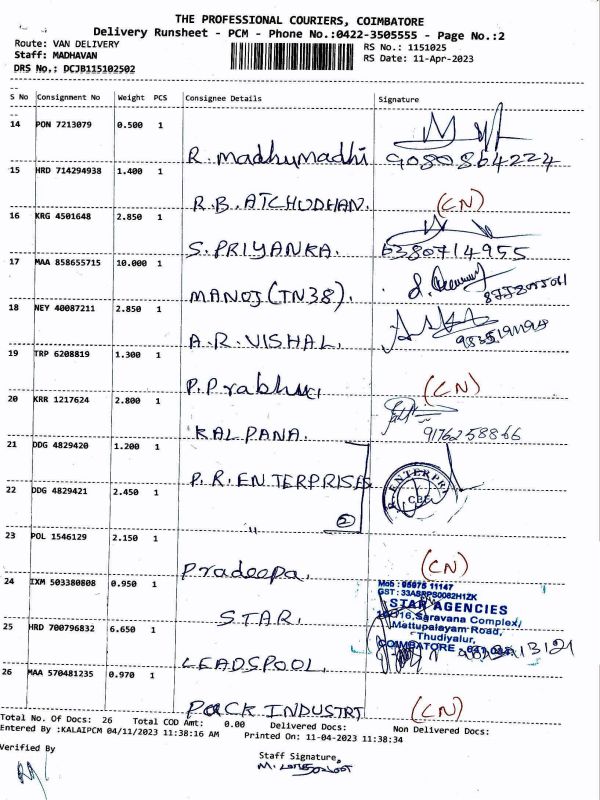 THE PROFESSIONAL COURIERS, COIMBATORE
Delivery Runsheet - PCM - Phone No.:0422-3505555 - Page No.:2
Route: VAN DELIVERY
RS No.: 1151025
Staff: MADHAVAN
RS Date: 11-Apr-2023
DRS No.: DCJB115102502
S No Consignment No Weight PCS Consignee Details Signature
14 PON 7213079 0.500 1
R. Madhumadhi 9080864224
15 HRD 714294938 1.400 1
R.B. ATCHUDHAN. (CN)
16 KRG 4501648 2.850 1
S. PRIYANKA. 6380714955
17 MAA 858655715 10.000 1
MANOJ (TN38).
18 NEY 40087211 2.850 1
A.R. VISHAL.
19 TRP 6208819 1.300 1
P. Prabhu (CN)
20 KRR 1217624 2.800 1
KALPANA. 9176258866
21 DDG 4829420 1.200 1
P.R. ENTERPRISES
22 DDG 4829421 2.450 1
" 2
R. ENTERPRI
CBE
23 POL 1546129 2.150 1
Pradeepa. (CN)
24 IXM 503380808 0.950 1
STAR.
Mob : 95975 11147
GST : 33ASRPS0082H1ZK
STAR AGENCIES
Saravana Complex
Mettupalayam Road,
Thudiyalur,
COIMBATORE
25 HRD 700796832 6.650 1
LEADSPOOL.
26 MAA 570481235 0.970 1
PACK INDUSTRY (CN)
Total No. Of Docs: 26 Total COD Amt: 0.00 Delivered Docs: Non Delivered Docs:
Entered By :KALAIPCM 04/11/2023 11:38:16 AM Printed On: 11-04-2023 11:38:34
Verified By
Staff Signature,